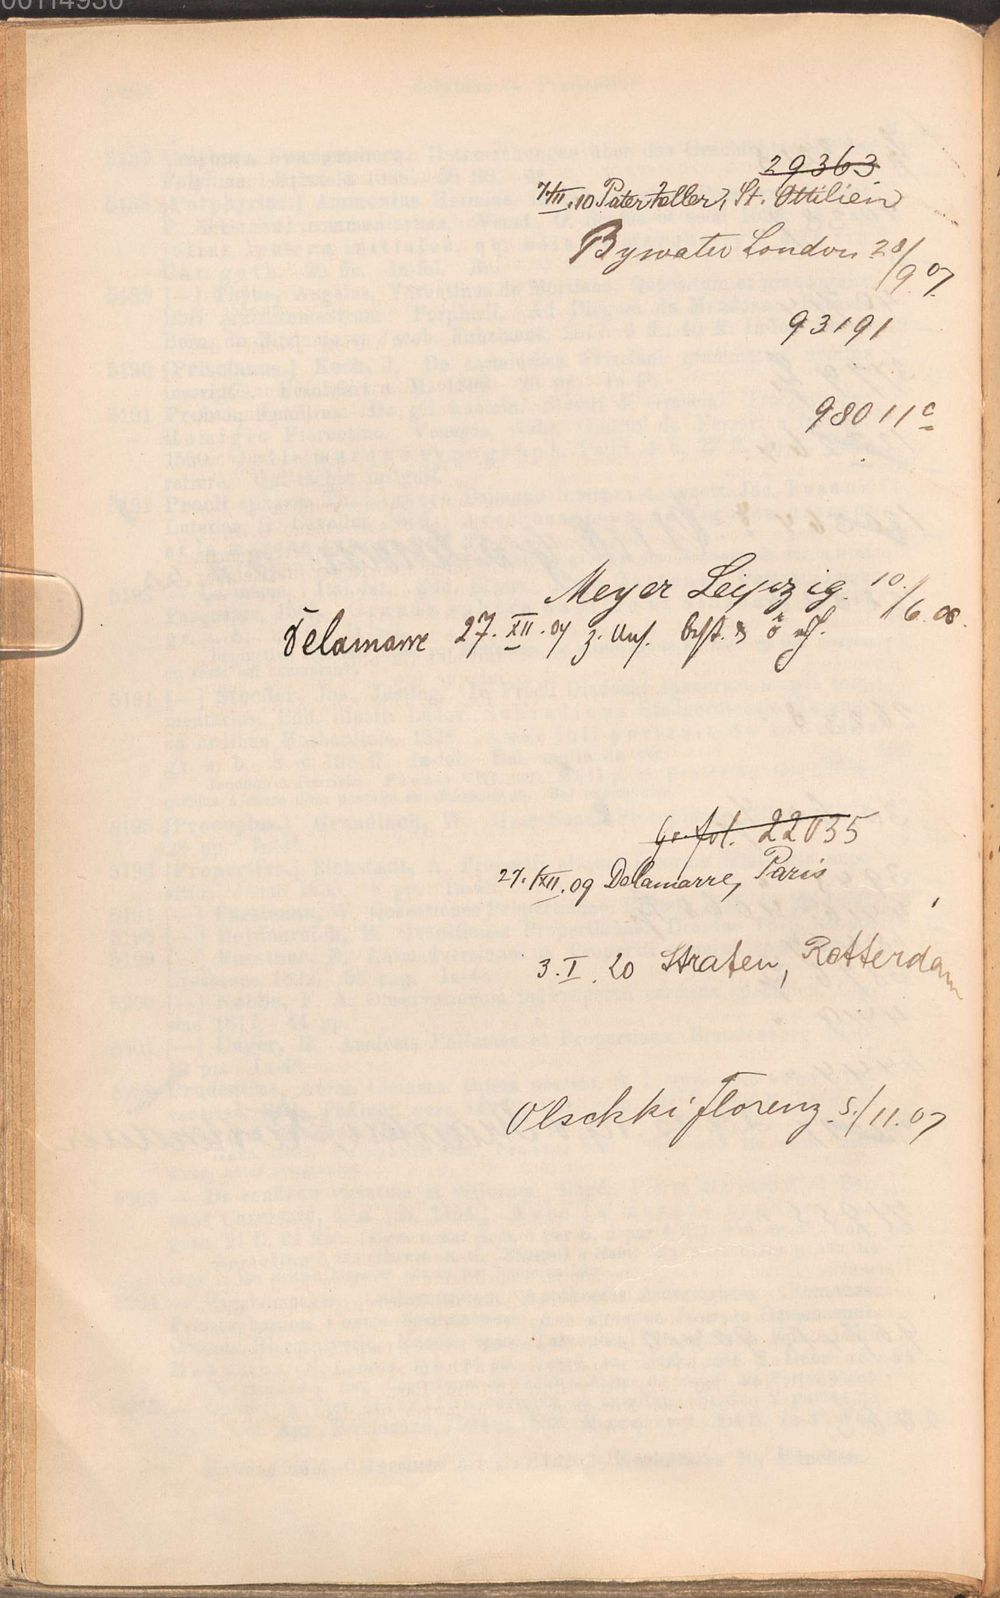 00114930
29363
7/II.10 Pater Keller, St. Ottilien
Bywater London 28/9.07.
93191
98011c
Meyer Leipzig. 10./6.08.
Delamarre 27.XII.09 z. Ans.
Gr. fol. 22035
27.XII.09 Delamarre, Paris
3.I.20 Straten, Rotterdam
Olschki Florenz. 5./11.07